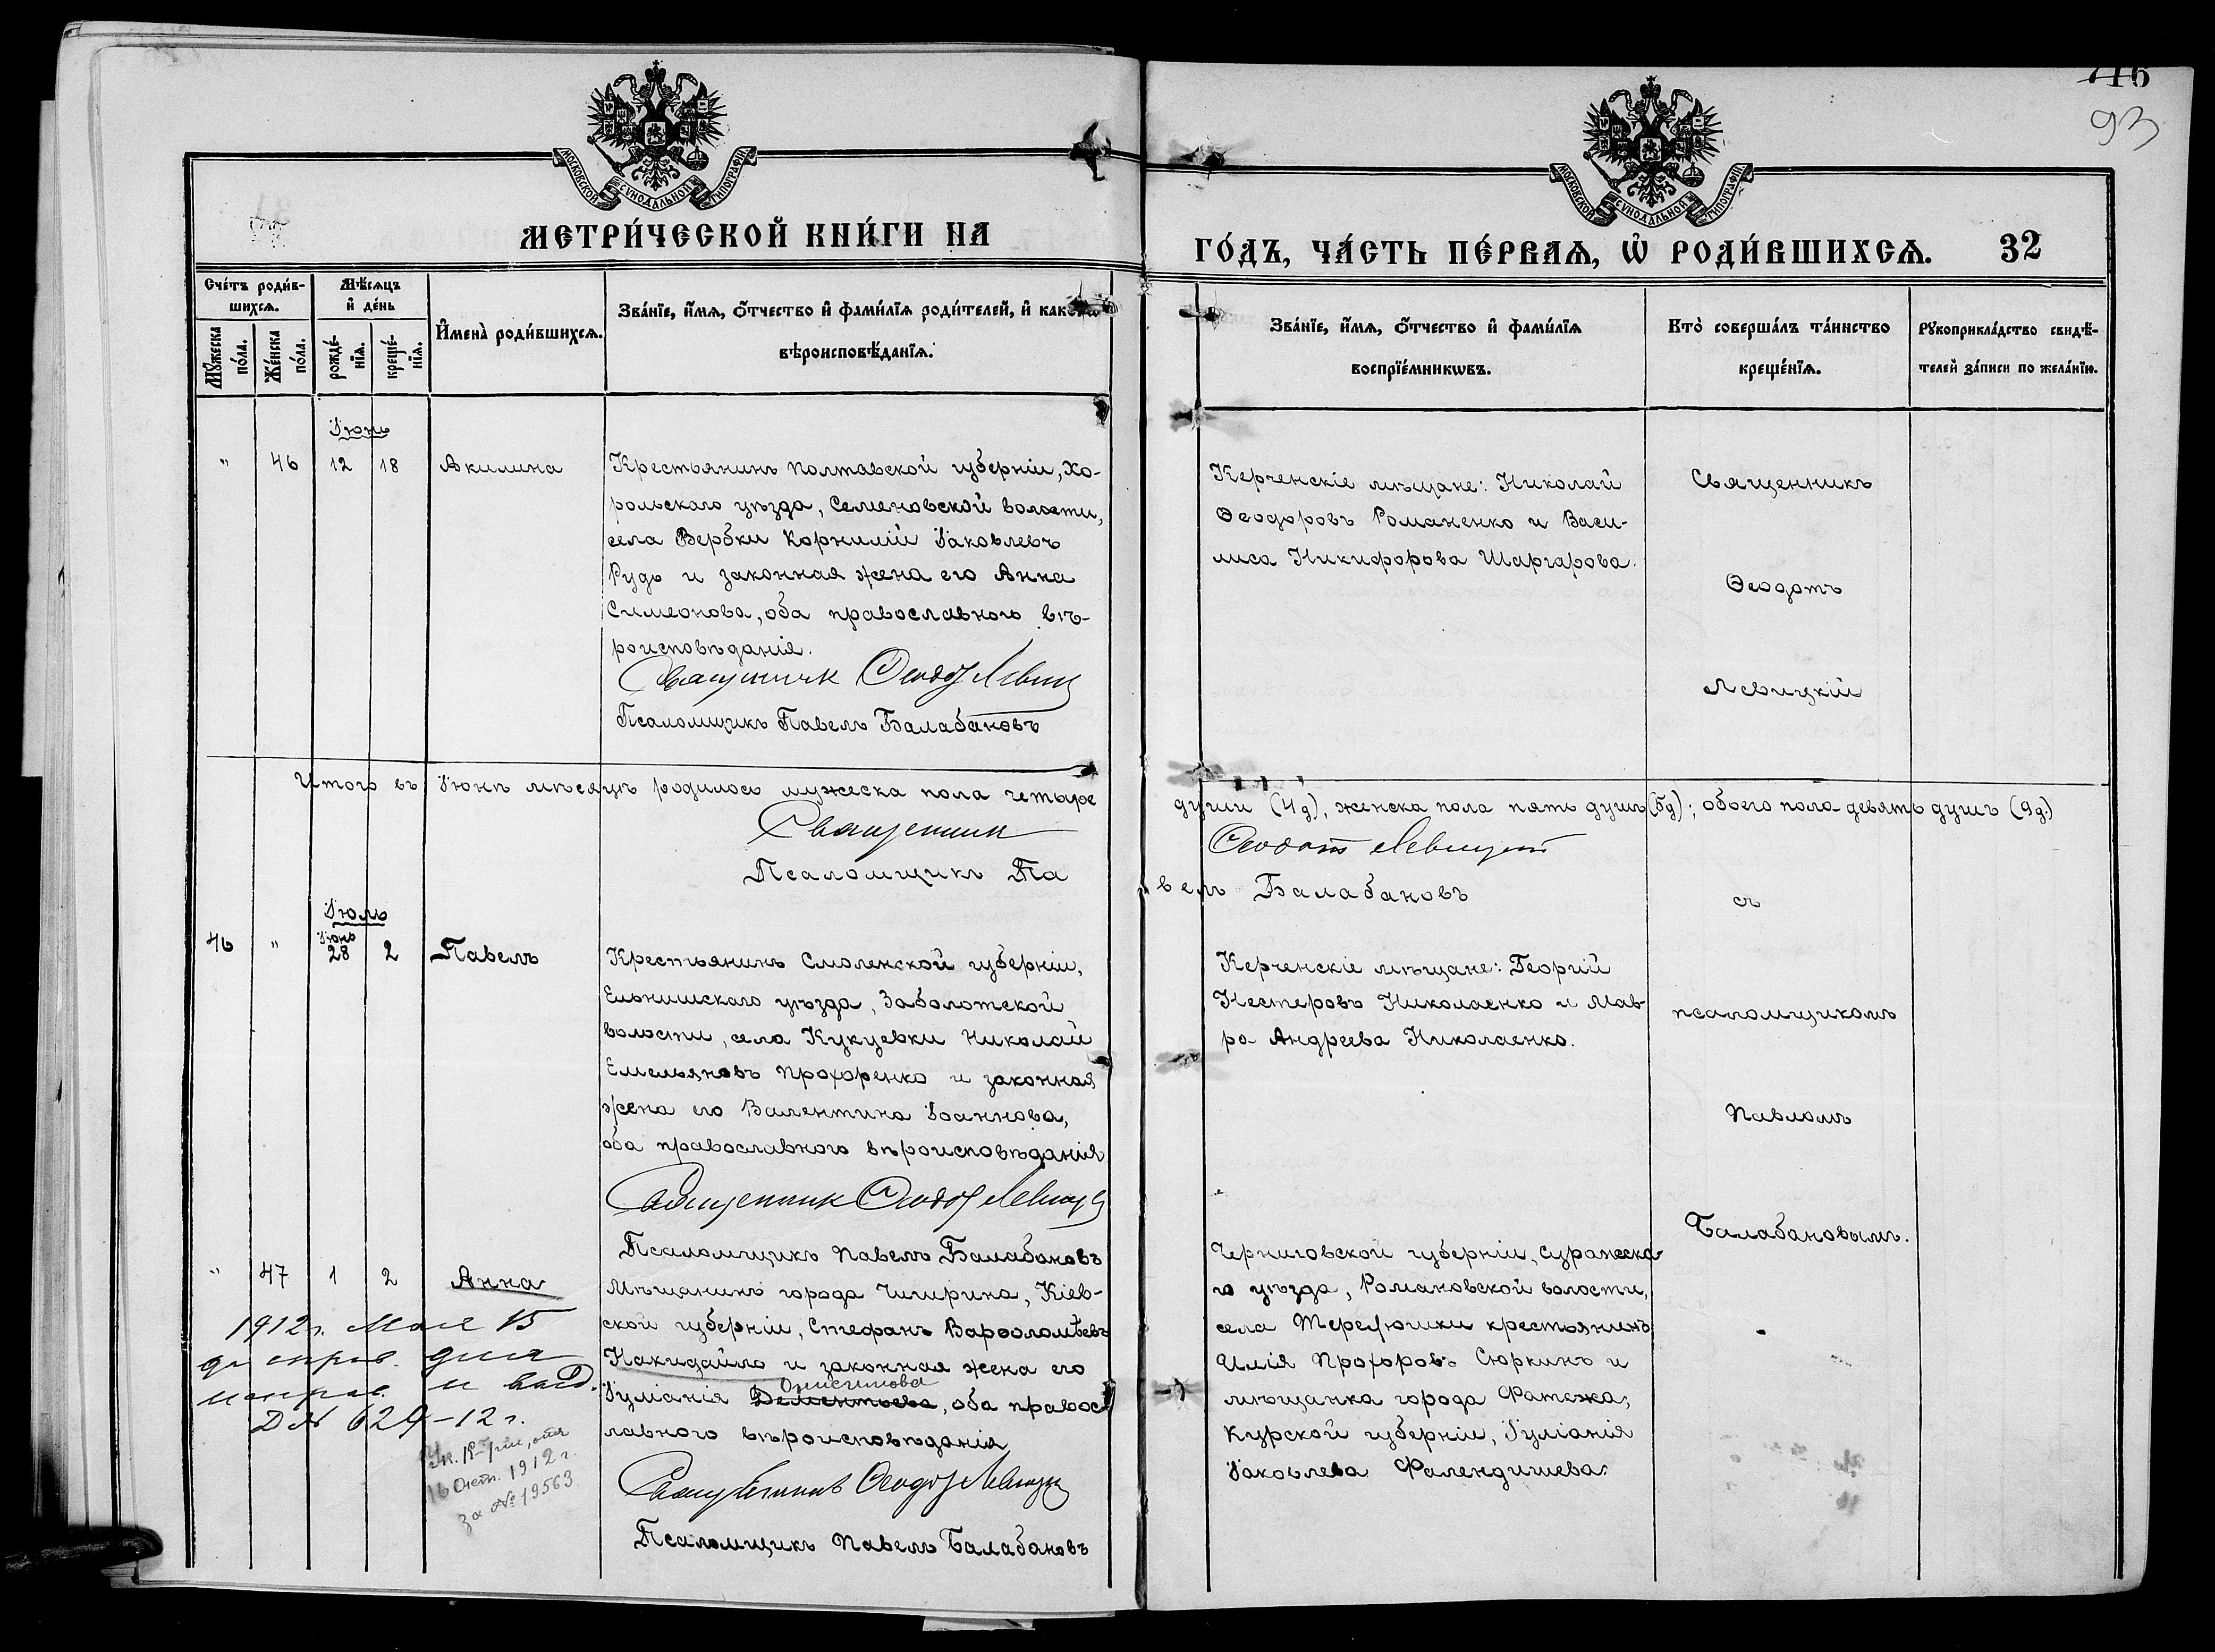 46
93
МОСКОВСКОЙ СѴНОДАЛЬНОЙ ТИПОГРАФІИ
МОСКОВСКОЙ СѴНОДАЛЬНОЙ ТИПОГРАФІИ
МЕТРИ́ЧЕСКОЙ КНИ́ГИ НА
ГО́ДЪ, ЧА́СТЬ ПЕ́РВАѦ, Ѿ РОДИ́ВШИХСѦ. 32
Сче́тъ роди́в-
шихсѧ.
Мꙋ́жеска
по́ла.
Же́нска
по́ла.
Мѣ́сѧцъ
и҆ де́нь
рожде́-
нїѧ.
креще́-
нїѧ.
И҆мена̀ роди́вшихсѧ.
Зва́нїе, и҆́мѧ, ѻ҆́тчество и҆ фами́лїѧ роди́телей, и҆ како́гѡ
вѣроисповѣ́данїѧ.
Зва́нїе, и҆́мѧ, ѻ҆́тчество и҆ фами́лїѧ
воспрїе́мникѡвъ.
Кто̀ соверша́лъ та́инство
креще́нїѧ.
Рꙋкоприкла́дство свидѣ́-
телей за́писи по жела́нїю.
Іюнь
" 46 12 18 Акилина
Крестьянинъ Полтавской губерніи, Хо-
рольскаго уѣзда, Семеновской волости,
села Вербки Корнилій Іаковлевъ
Рудь и законная жена его Анна
Симеонова, оба православного вѣ-
роисповѣданія.
Священник Ѳеодот Левиц
Псаломщикъ Павелъ Балабановъ
Керченскіе мѣщане: Николай
Ѳеодоровъ Романенко и Васи-
лиса Никифорова Шаргарова.
Священникъ
Ѳеодотъ
Левицкій
Итого въ Іюнѣ мѣсяцѣ родилось мужеска пола четыре
души (4 д), женска пола пять душъ (5 д); обоего пола девять душъ (9 д.)
Священник
Ѳеодот Левицкій
Псаломщикъ Па
велъ Балабановъ
Іюль
46 " Іюнь 28 2 Павелъ
Крестьянинъ Смоленской губерніи,
Ельнинскаго уѣзда, Заболотской
волости, села Кукуевки Николай
Емельяновъ Прохоренко и законная
жена его Валентина Іоаннова,
оба православного вѣроисповѣданія
Священник Ѳеодот Левицк
Псаломщикъ Павелъ Балабановъ
Керченскіе мѣщане: Георгій
Нестеровъ Николаенко и Мав-
ра Андреева Николаенко.
съ
псаломщикомъ
Павломъ
Балабановымъ.
" 47 1 2 Анна
Мѣщанинъ города Чигирина, Кіев-
ской губерніи, Стефанъ Варѳоломѣевъ
Накидайло и законная жена его
Онисимова
Іуліанія Дементьева, оба правос-
лавного вѣроисповѣданія
Священник Ѳеодот Левицк
Псаломщикъ Павелъ Балабановъ
Черниговской губерніи, Суражска-
го уѣзда, Романовской волости,
села Терелюшки крестьянинъ
Илія Прохоровъ Сюркинъ и
мѣщанка города Фатежа,
Курской губерніи, Іуліанія
Іаковлева Фалендишева.
1912 г. Мая 15
дня
и выд.
Д № 629-12 г.
16 Окт. 1912 г.
за № 19563